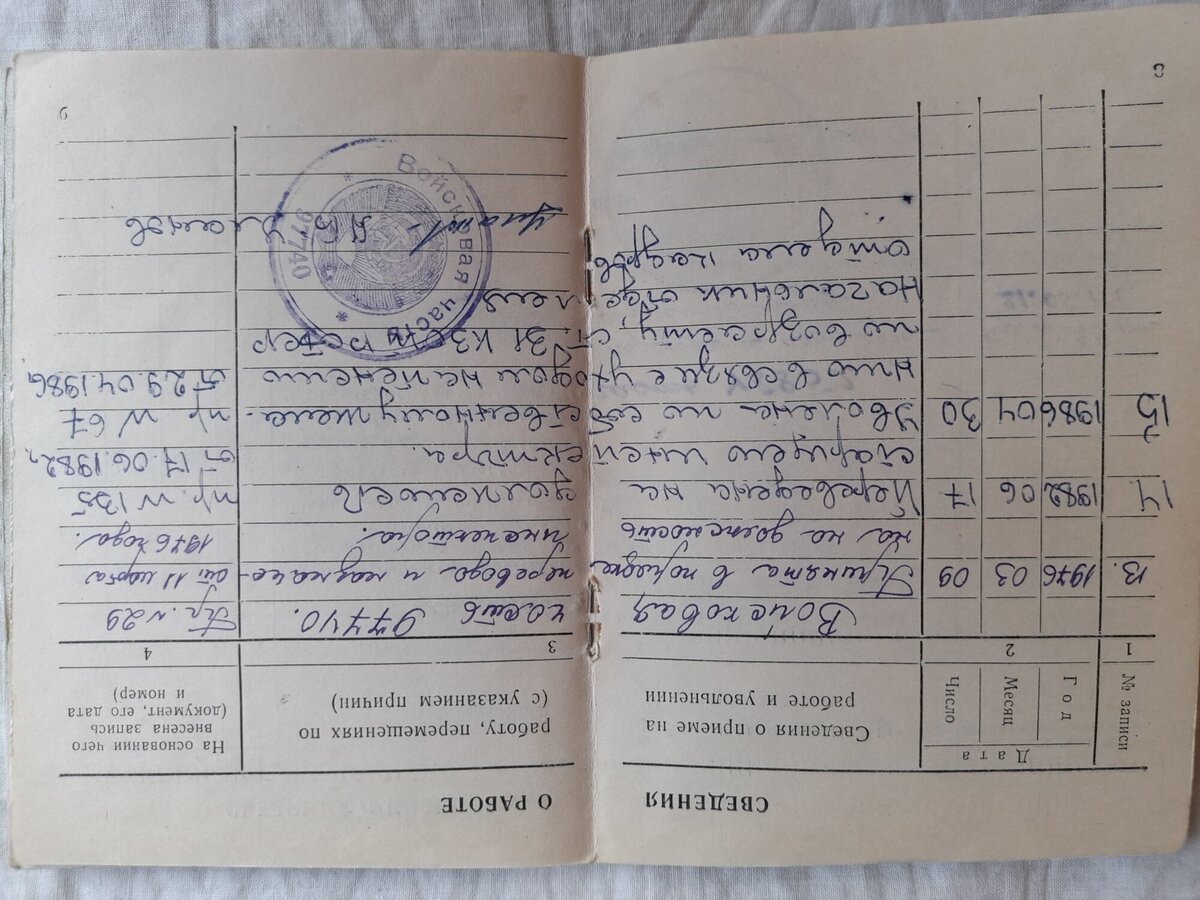 СВЕДЕНИЯ О РАБОТЕ
№ записи
Дата
Число
Месяц
Год
Сведения о приеме на работу, перемещениях по
работе и увольнении (с указанием причин)
На основании чего
внесена запись
(документ, его дата
и номер)
1 2 3 4
Войсковая часть 97740. Пр. №29
13. 1976 03 09 Принята в порядке перевода и назначе- от 11 марта
на на должность инспектора. 1976 года.
14 1982 06 17 Переведена на должность пр. N 135
старшего инспектора. от 17.06.1982г.
15 1986 04 30 Уволена по собственному жела- пр. N 67
нию в связи с уходом на пенсию от 29.04.1986г
по возрасту, ст. 31 КЗоТ РСФСР
Начальник отделения
отдела кадров
Войсковая часть
* 97740 *
8
9